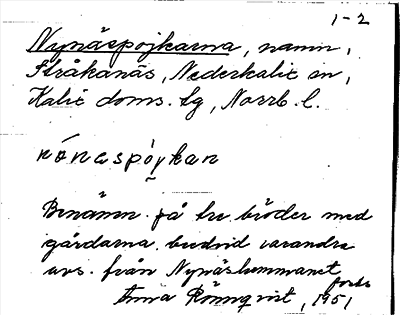 1-2
Nynäspojkarna, namn,
Stråkanäs, Nederkalix sn,
Kalix doms. lg, Norrb. l.
nónaspoykan
Benämn. på tre bröder med
gårdarna bredvid varandra
avs. från Nynäshemmanet
forts
Anna Rönnqvist, 1951